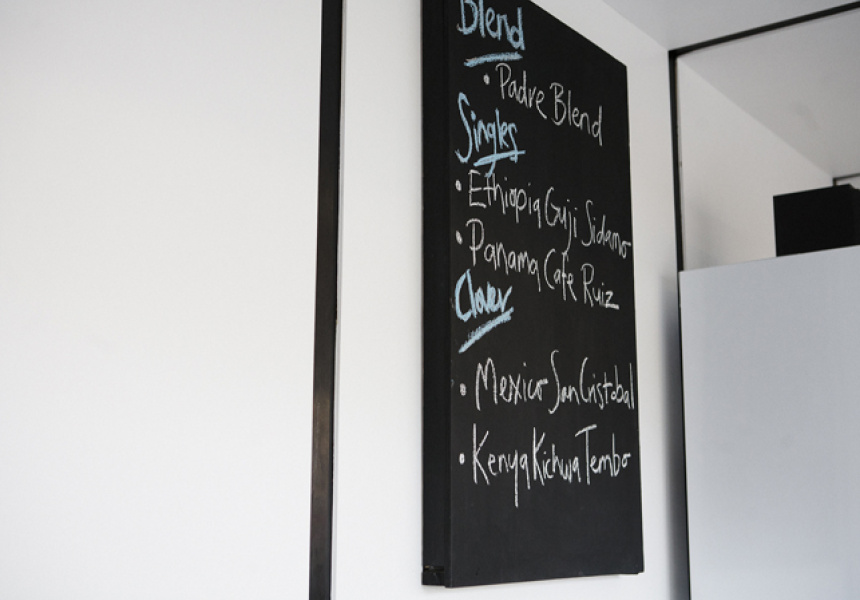 Blend
• Padre Blend
Singles
• Ethiopia Guji Sidamo
• Panama Cafe Ruiz
Clover
• Mexico San Cristobal
• Kenya Kichwa Tembo